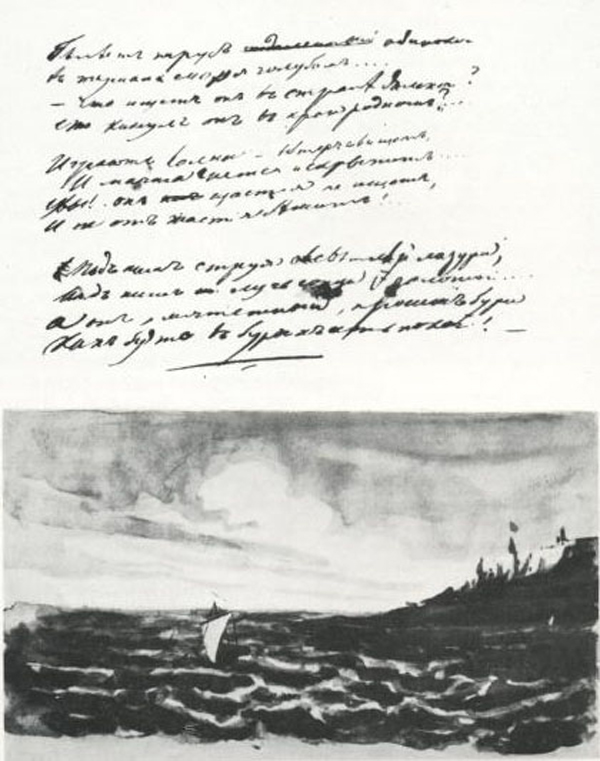 Бѣлѣетъ парусъ одинокой
въ туманѣ моря голубомъ....
– Что ищетъ онъ въ странѣ далекой?
Что кинулъ онъ въ краю родномъ?...
Играютъ волны – вѣтеръ свищетъ,
И мачта гнется и скрыпитъ....
Увы! онъ счастія не ищетъ,
И не отъ счастія бѣжитъ!
Подъ нимъ струя свѣтлѣй лазури,
Надъ нимъ лучъ солнца золотой....
А онъ, мятежный, проситъ бури
Какъ будто въ буряхъ есть покой! —